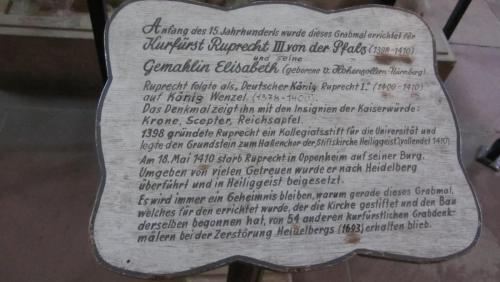 Anfang des 15. Jahrhunderts wurde dieses Grabmal errichtet für
Kurfürst Ruprecht III. von der Pfalz (1398-1410)
und seine
Gemahlin Elisabeth (geborene v. Hohenzollern-Nürnberg)
Ruprecht folgte als, Deutscher König Ruprecht I." (1400-1410)
auf König Wenzel. (1378-1400).
Das Denkmal zeigt ihn mit den Insignien der Kaiserwürde:
Krone, Scepter, Reichsapfel.
1398 gründete Ruprecht ein Kollegiatsstift für die Universität und
legte den Grundstein zum Hallenchor der Stiftskirche Heiliggeist (vollendet 1410)
Am 18. Mai 1410 starb Ruprecht in Oppenheim auf seiner Burg.
Umgeben von vielen Getreuen wurde er nach Heidelberg
überführt und in Heiliggeist beigesetzt.
Es wird immer ein Geheimnis bleiben, warum gerade dieses Grabmal,
welches für den errichtet wurde, der die Kirche gestiftet und den Bau
derselben begonnen hat, von 54 anderen kurfürstlichen Grabdenk-
mälern bei der Zerstörung Heidelbergs (1693) erhalten blieb.